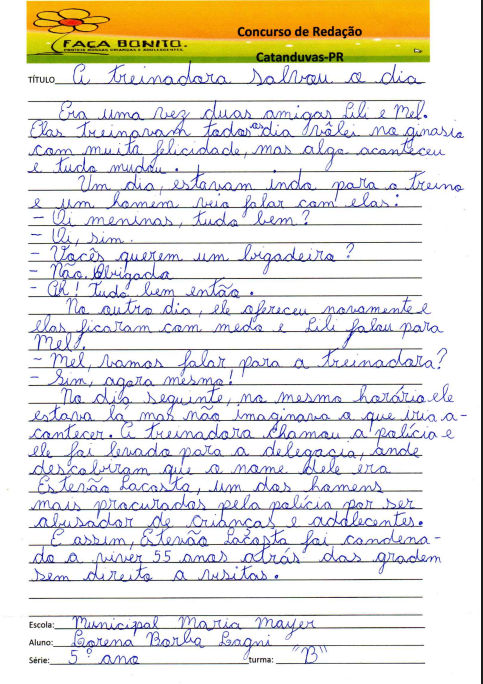 Concurso de Redação
FAÇA BONITO.
PROTEJA NOSSAS CRIANÇAS E ADOLESCENTES.
Catanduvas-PR
TÍTULO A treinadora salvou o dia
Era uma vez duas amigas Lili e Mel.
Elas treinavam todos os dia vôlei no ginasio
com muita felicidade, mas algo aconteceu
e tudo mudou.
Um dia, estavam indo para o treino
e um homem veio falar com elas:
- Oi meninas, tudo bem?
- Oi, sim.
- Vocês querem um brigadeiro?
- Não. Obrigada
- Ah! Tudo bem então.
No outro dia, ele ofereceu novamente e
elas ficaram com medo e Lili falou para
Mel:
- Mel, vamos falar para a treinadora?
- Sim, agora mesmo!
No dia seguinte, no mesmo horário ele
estava lá mas não imaginava o que iria a-
contecer. A treinadora chamou a polícia e
ele foi levado para a delegacia, onde
descobriram que o nome dele era
Estevão Lacosta, um dos homens
mais procurados pela polícia por ser
abusador de crianças e addlecentes.
E assim, Estevão Lacosta foi condena-
do a viver 55 anos atrás das gradem
sem direito a visitas.
Escola: Municipal Maria Mayer
Aluno: Lorena Borba Lagni
Série: 5º ano turma: "B"